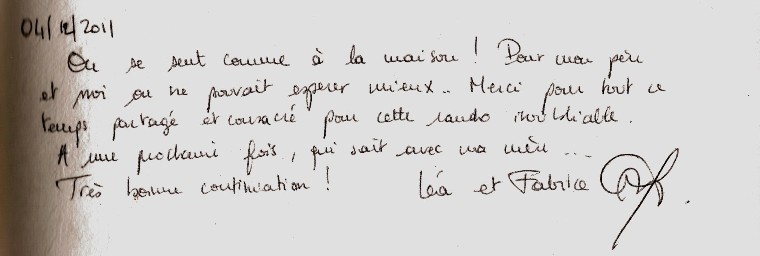 04/12/2011
On se sent comme à la maison ! Pour mon père
et moi on ne pouvait espérer mieux.. Merci pour tout ce
temps partagé et consacré pour cette rando inoubliable.
A une prochaine fois, qui sait avec ma mère...
Très bonne continuation ! Léa et Fabrice